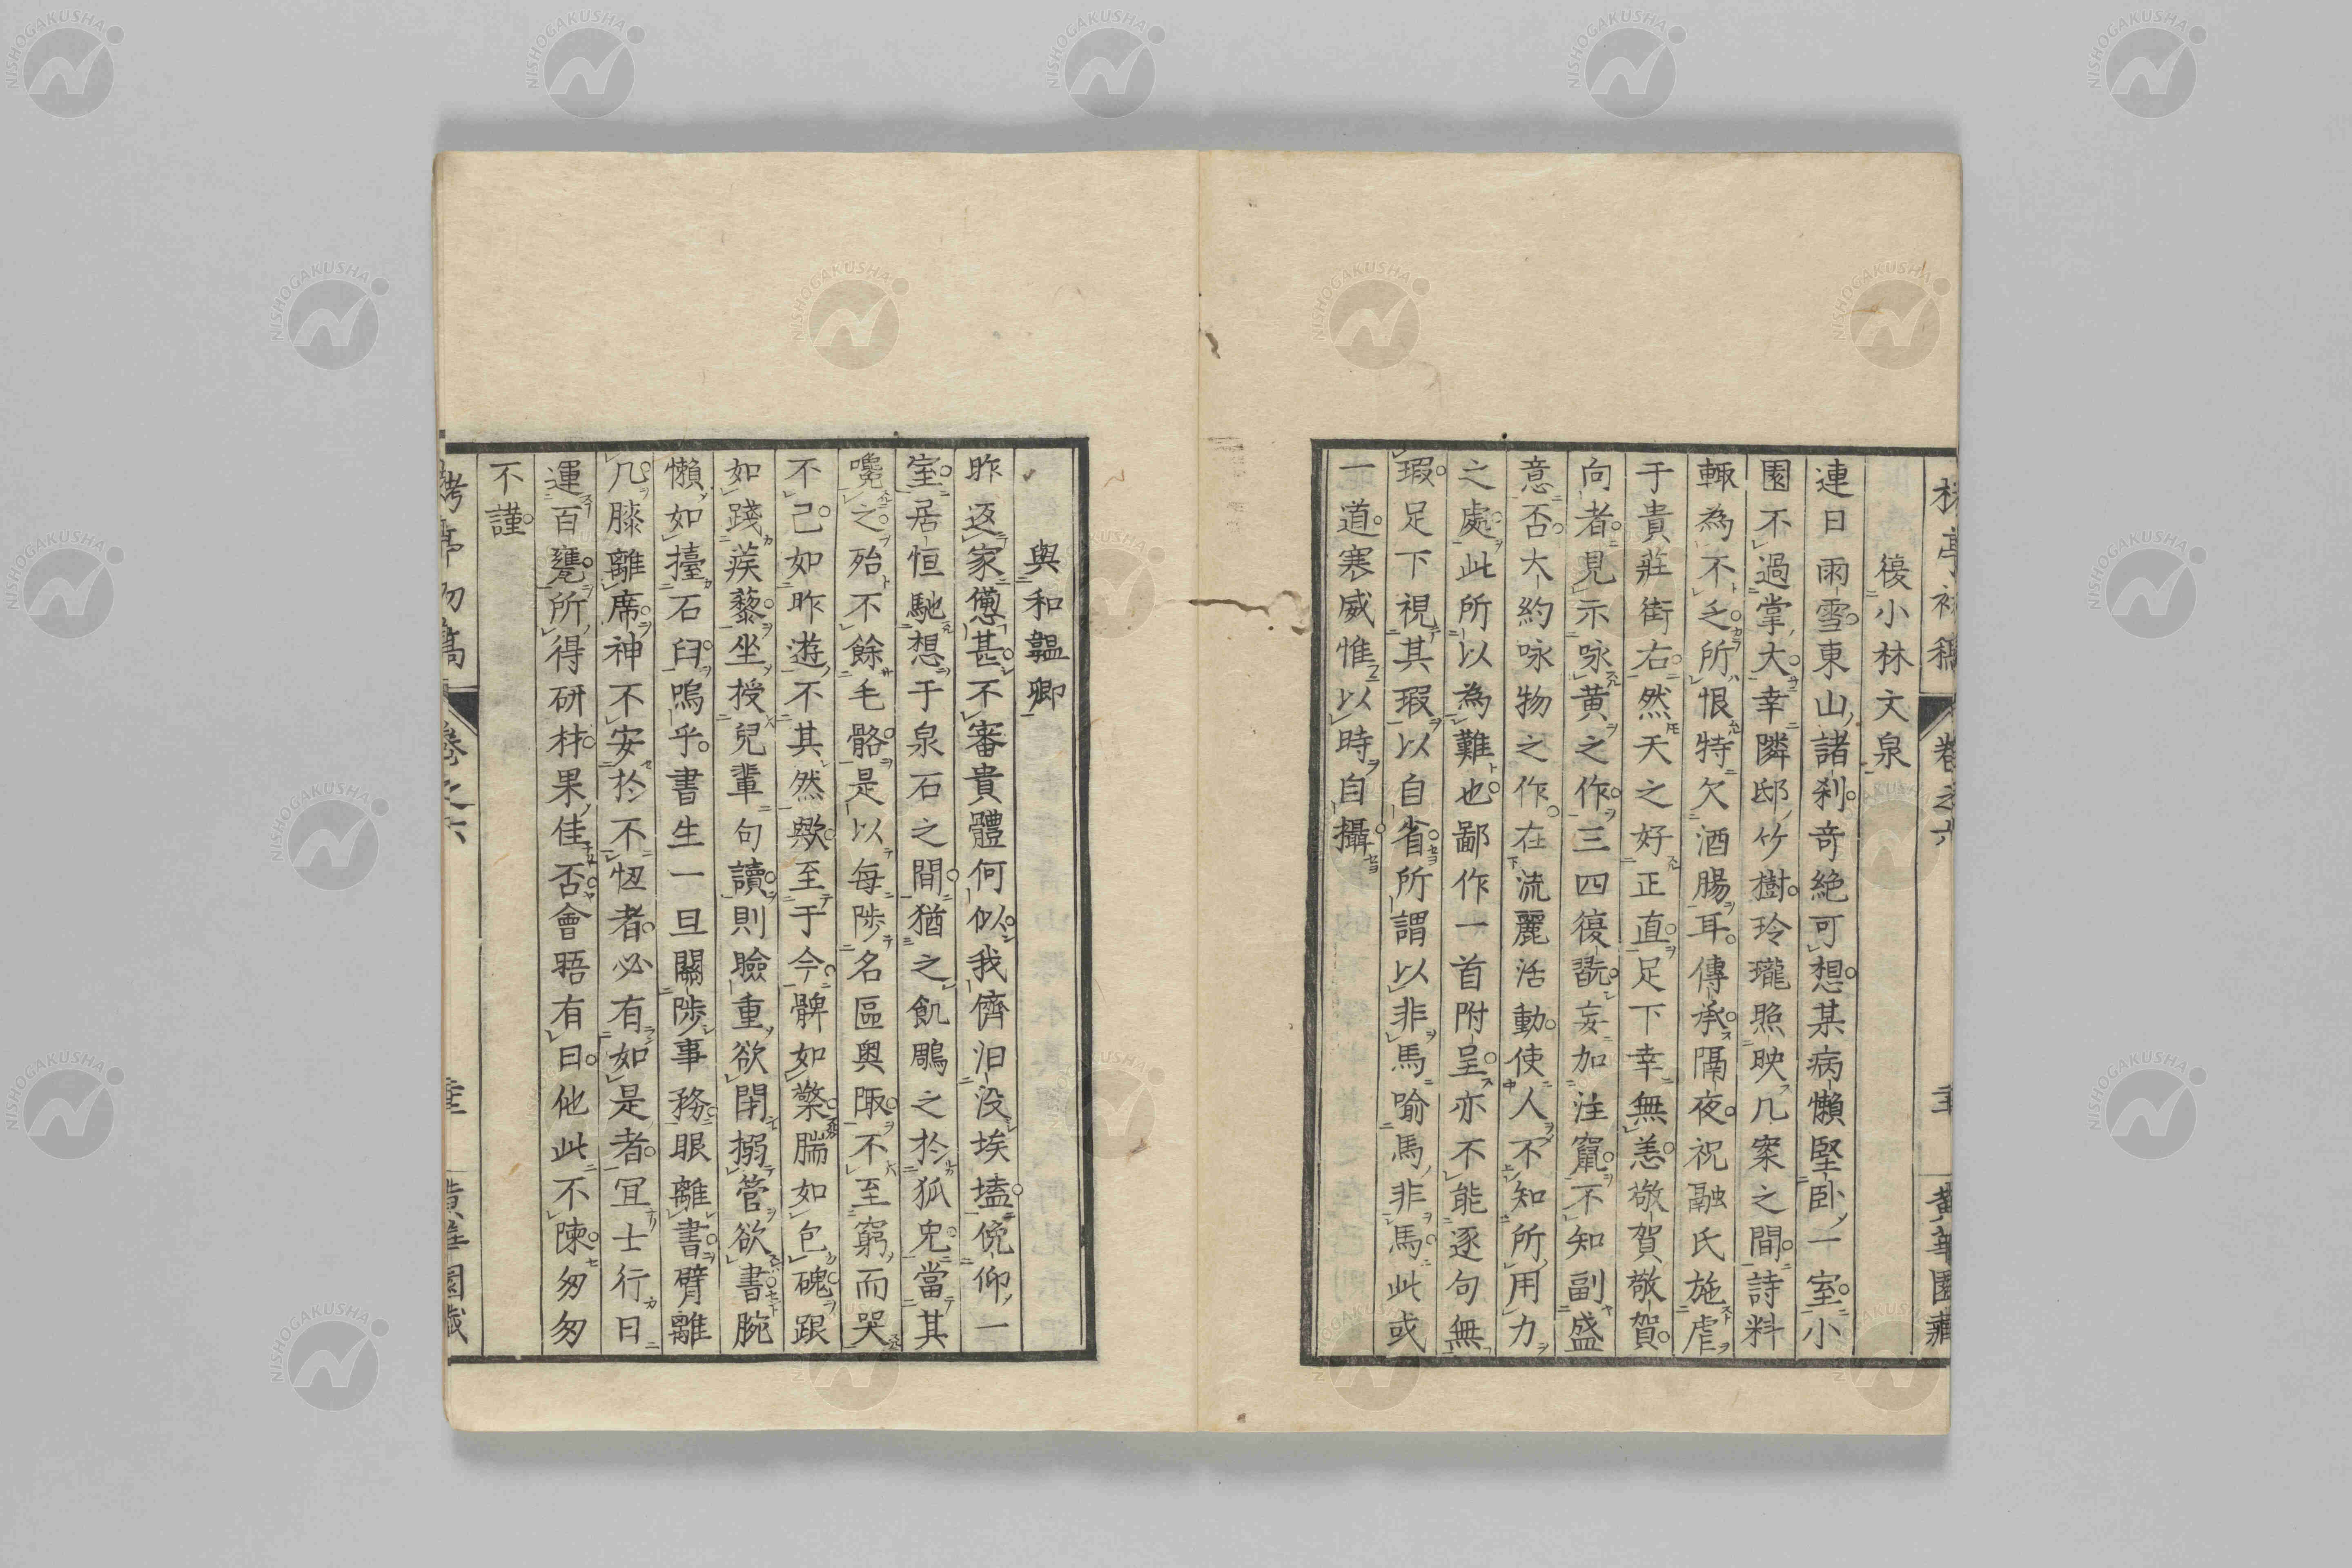 復小林文泉
連日雨雪東山諸刹奇絶可想某病懶堅臥一室小
園不過掌大幸隣邸竹樹玲瓏照映几案之間詩料
輙為不乏所恨特欠酒腸耳傳承隔夜祝融氏施虐
于貴莊街右然天之好正直足下幸無恙敬賀敬賀
向者見示咏黄之作三四復翫妄加注竄不知副盛
意否大約咏物之作在流麗活動使人不知所用力
之處此所以為難也鄙作一首附呈亦不能逐句無
瑕足下視其瑕以自省所謂以非馬喻馬非馬此或
一道寒威惟以時自攝
與和韞卿
昨返家憊甚不審貴體何似我儕汩没埃壒俛仰一
室居恒馳想于泉石之間猶之飢鵰之於狐兔當其
嚵之殆不餘毛骼是以每陟名區奥陬不至窮而哭
不已如昨遊不其然歟至于今髀如檠腨如包磈跟
如踐蒺藜坐授兒輩句讀則瞼重欲閉搦管欲書腕
懶如擡石臼嗚乎書生一旦關陟事務眼離書臂離
几膝離席神不安於不忸者必有如是者冝士行日
運百甓所得研材果佳否會晤有日他此不陳匆匆
不謹
卷之六
黄華園藏